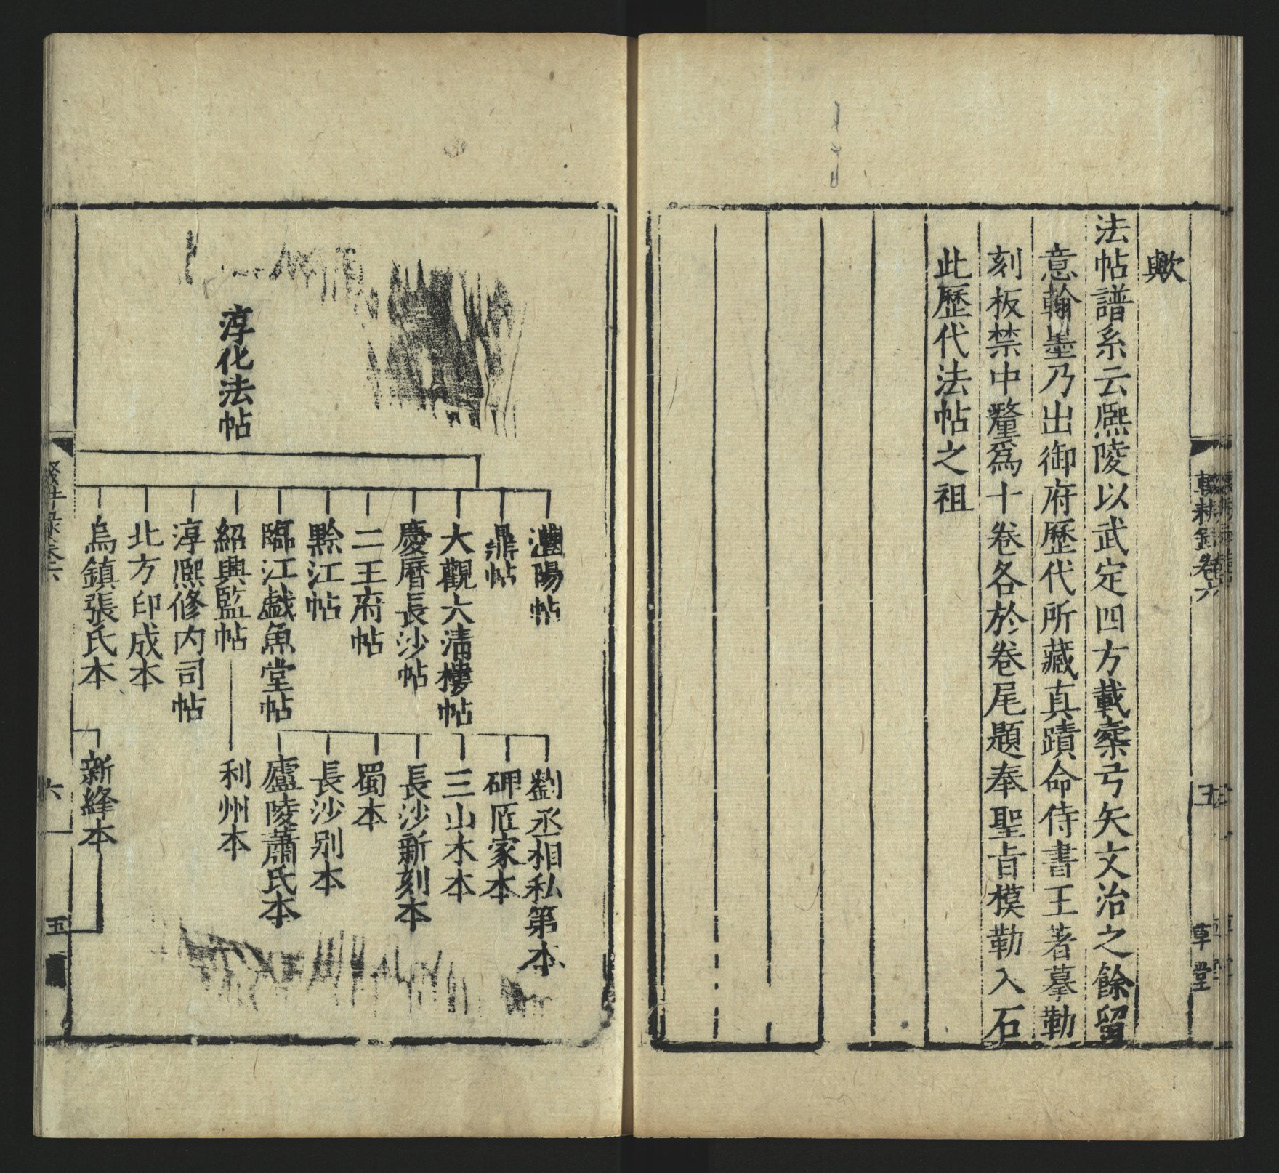 歟
法帖譜系云熈陵以武定四方載櫜弓矢文治之餘留
意翰墨乃出御府歷代所藏真蹟命侍書王著摹勒
刻板禁中釐爲十卷各於卷尾題奉聖旨模勒入石
此歷代法帖之祖
輟耕錄卷六
五
草堂
淳化法帖
澧陽帖
鼎帖
大觀太清樓帖
慶曆長沙帖
二王府帖
黔江帖
臨江戲魚堂帖
紹興監帖
淳熈修內司帖
北方印成本
烏鎮張氏本
劉丞相私第本
碑匠家本
三山木本
長沙新刻本
蜀本
長沙别本
廬陵蕭氏本
利州本
新絳本
六
五